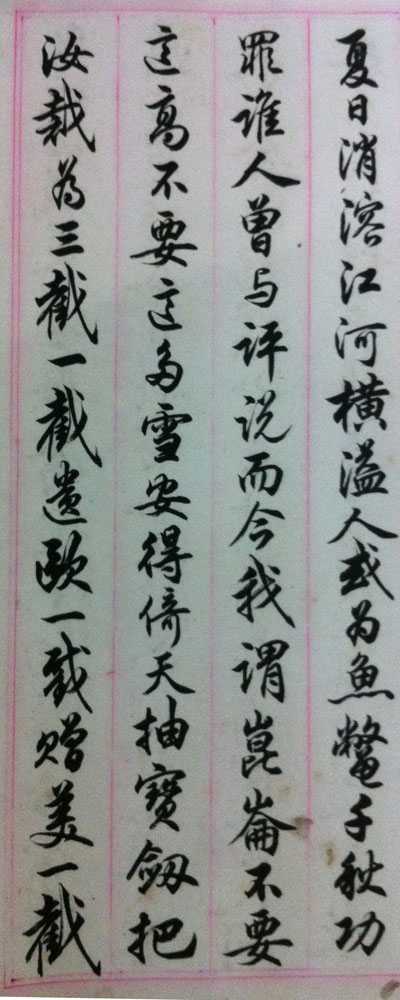 夏日消溶江河横溢人或为魚鼈千秋功
罪谁人曾与评说而今我谓崑崙不要
这高不要这多雪安得倚天抽寶劔把
汝裁为三截一截遗欧一截赠美一截